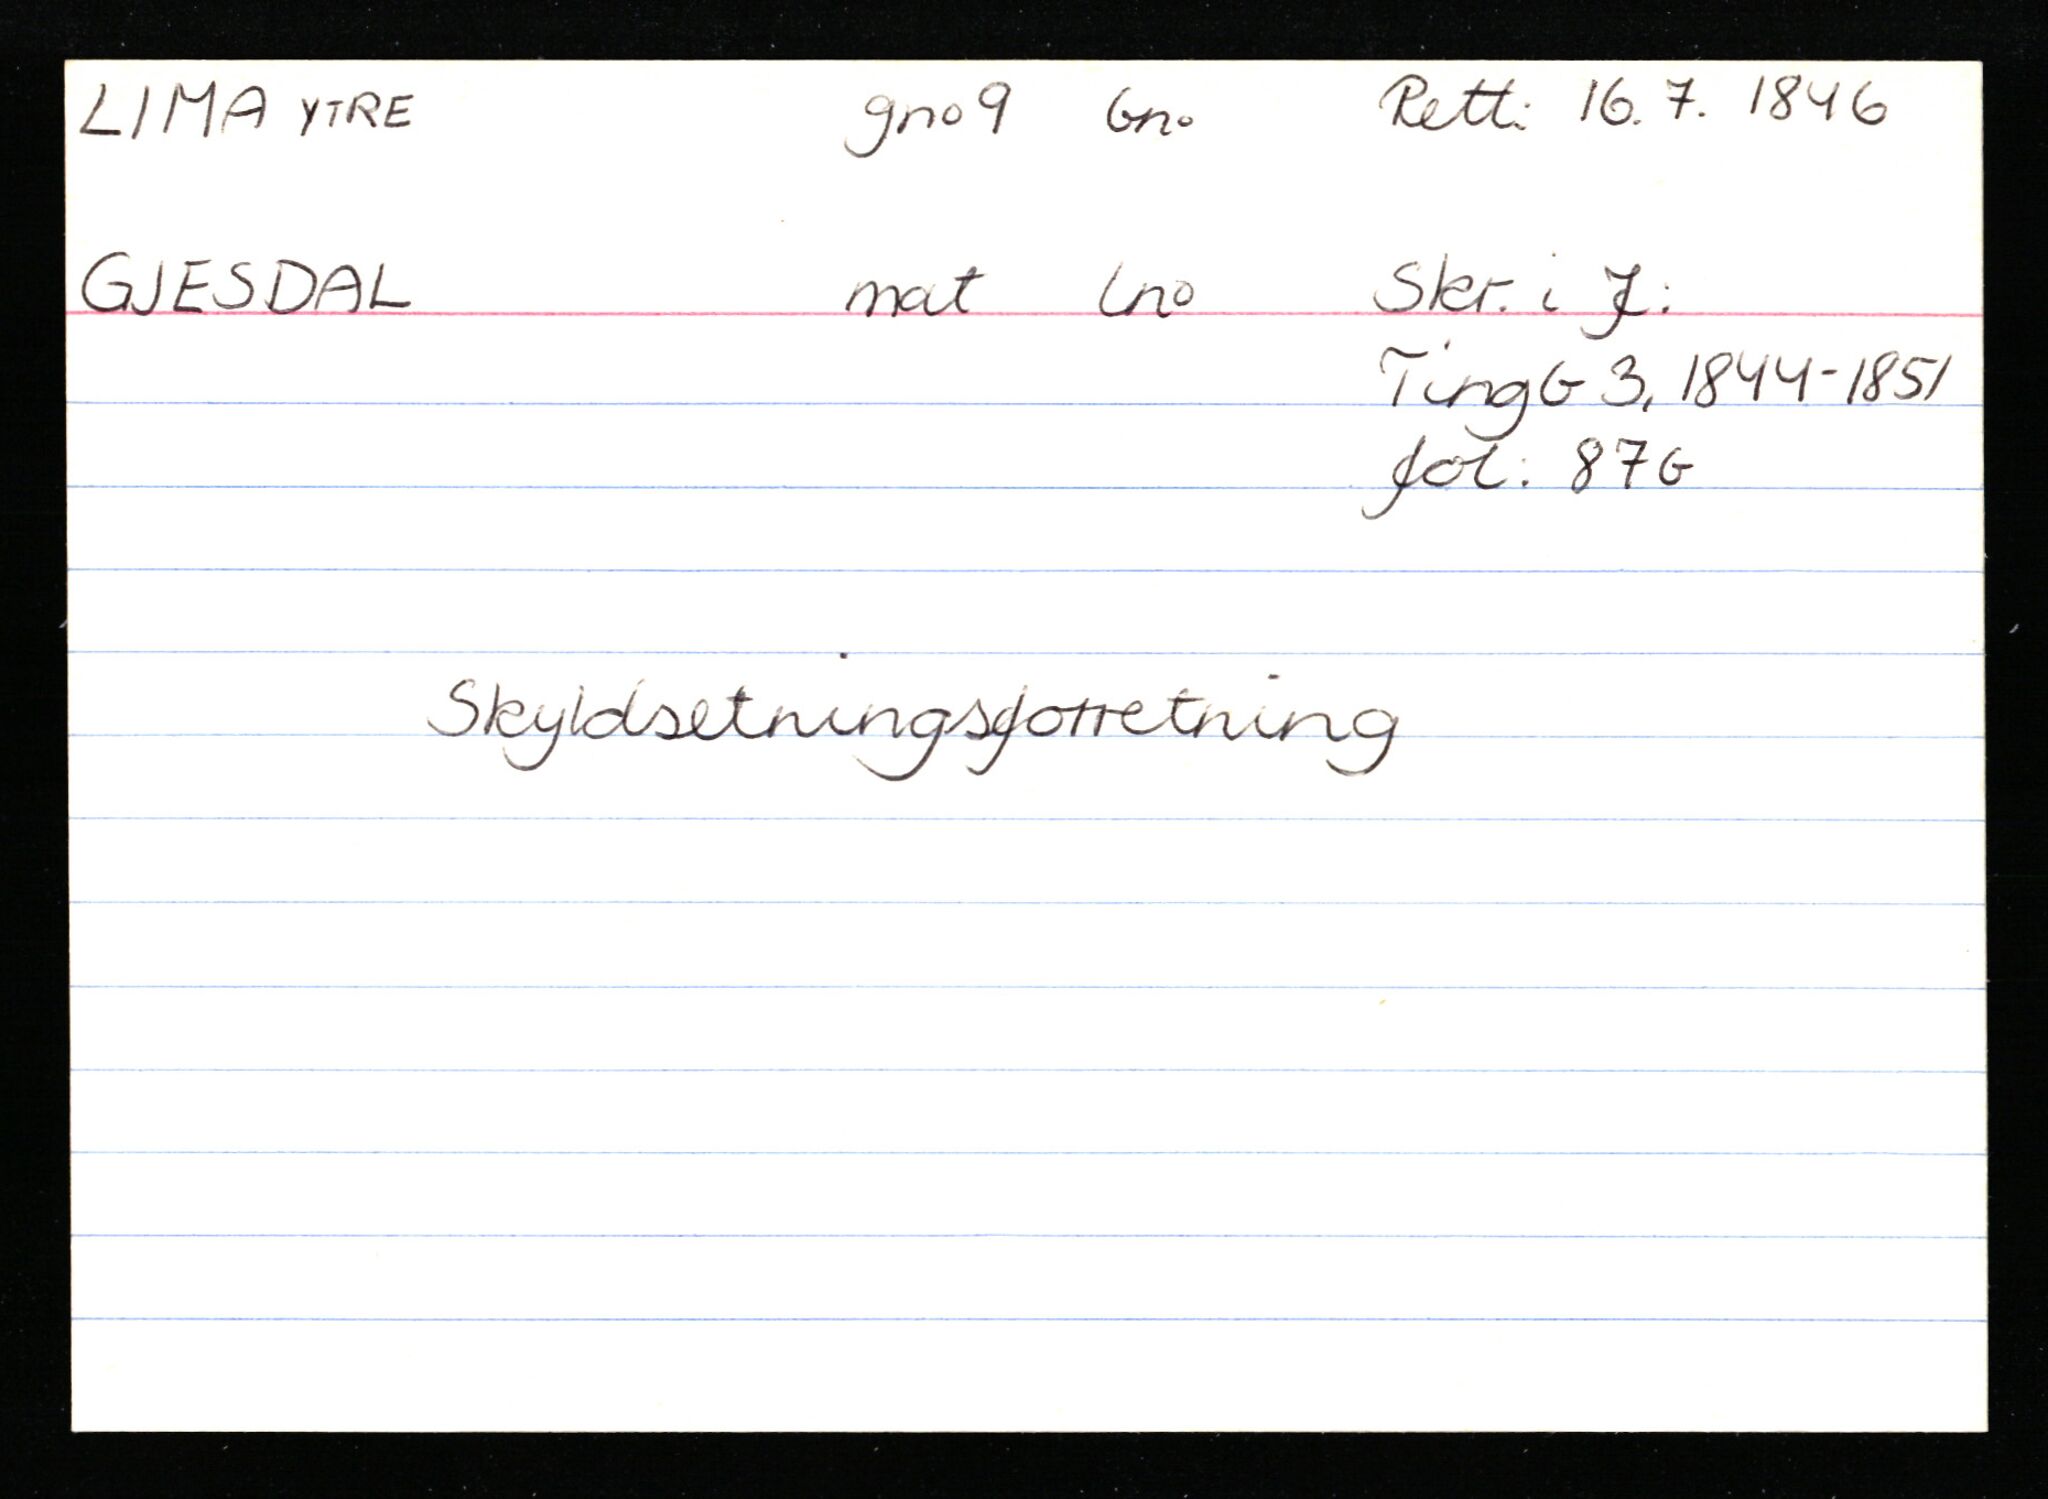 LIMA YTRE gno 9 bno Rett: 16. 7. 1846
GJESDAL mat lno Skr. i J:
Tingb 3, 1844-1851
fol: 87b
Skyldsetningsforretning